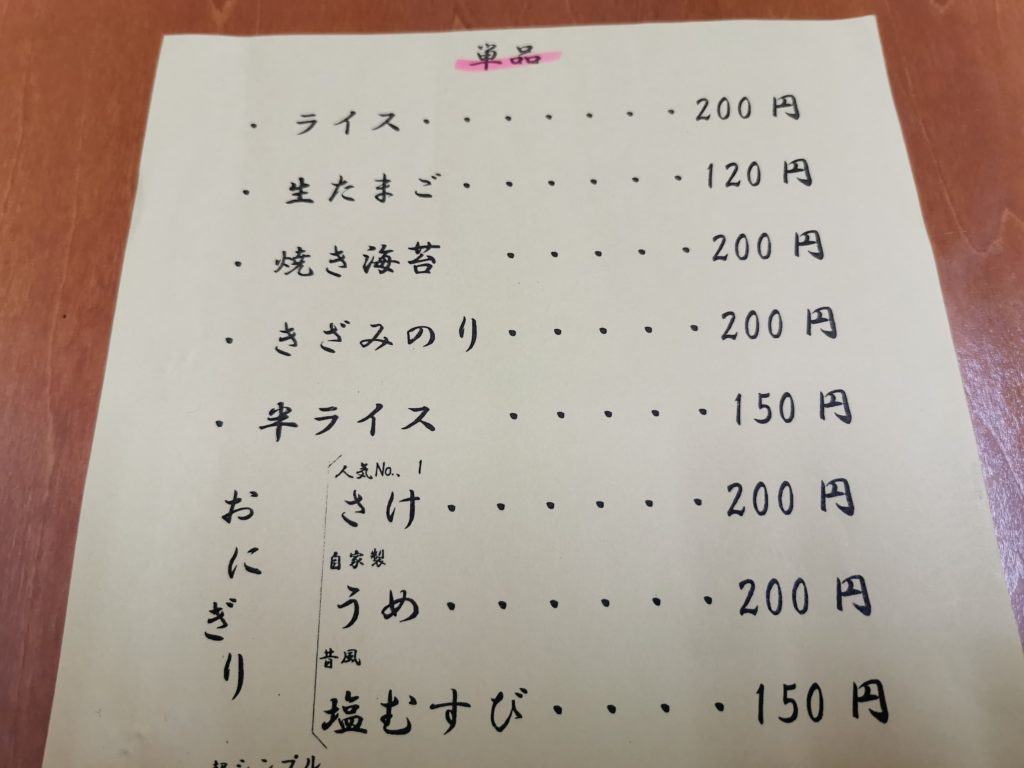 単品
・ライス・・・・・・・200円
・生たまご・・・・・・120円
・焼き海苔・・・・・200円
・きざみのり・・・・・200円
・半ライス・・・・・150円
おにぎり
人気No.、1
さけ・・・・・・200円
自家製
うめ・・・・・・200円
昔風
塩むすび・・・・150円
超シンプル